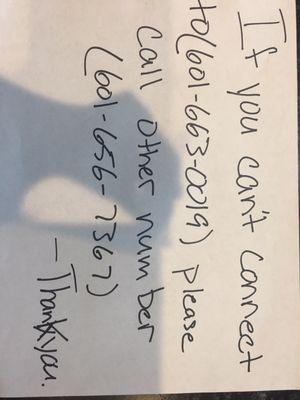 If you can't connect
to (601-663-0019) please
call other number
(601-656-7367)
- Thank you.